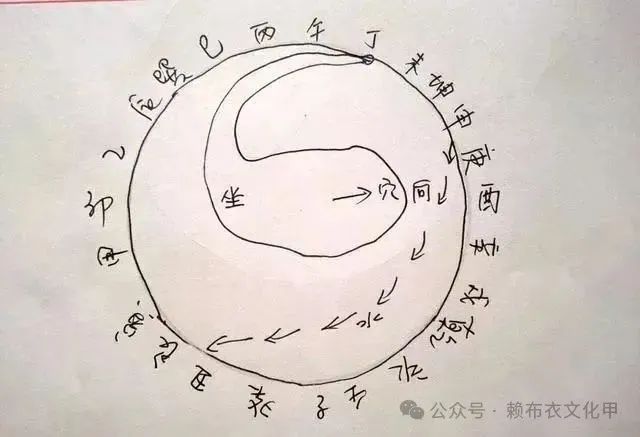 巳 丙 午 丁 未 坤 申 庚 酉 辛 戌 乾 亥 壬 子 癸 丑 艮 寅 甲 卯 乙 辰 巽
坐 穴 向
水
公众号 · 赖布衣文化甲